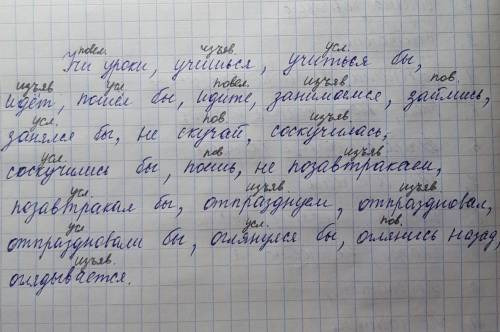 повел. изъяв. усл.
Учи уроки, учишься, учиться бы,
изъяв усл повел. изъяв. пов.
идёт, пошёл бы, идите, занимаемся, займись,
усл. пов изъяв.
занялся бы, не скучай, соскучилась,
усл. пов изъяв
соскучились бы, поешь, не позавтракаем,
усл. изъяв изъяв
позавтракал бы, отпразднуем, отпраздновал,
усл усл. пов.
отпраздновали бы, оглянулся бы, оглянись назад,
изъяв.
оглядывается.